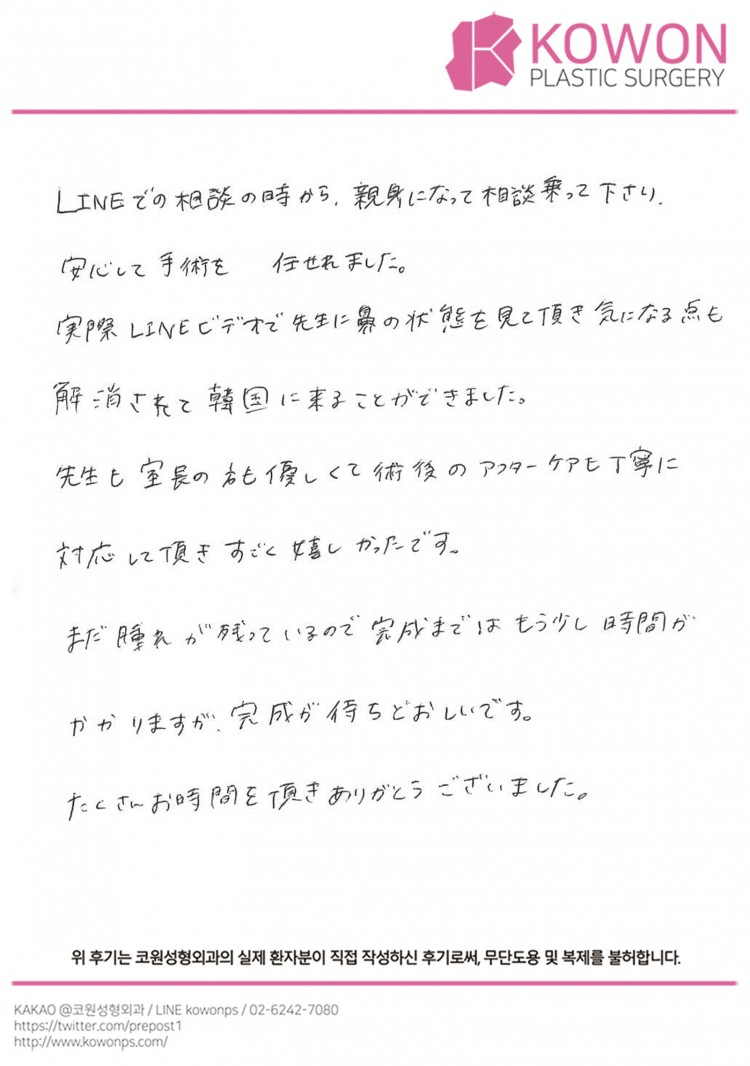 KOWON
PLASTIC SURGERY
LINEでの相談の時から、親身になって相談乗って下さり、
安心して手術を 任せれました。
実際LINEビデオで先生に鼻の状態を見て頂き気になる点も
解消されて韓国に来ることができました。
先生も室長の方も優しくて術後のアフターケアも丁寧に
対応して頂きすごく嬉しかったです。
まだ腫れが残っているので完成まではもう少し時間が
かかりますが、完成が待ちどおしいです。
たくさんお時間を頂きありがとうございました。
위 후기는 코원성형외과의 실제 환자분이 직접 작성하신 후기로써, 무단도용 및 복제를 불허합니다.
KAKAO @코원성형외과 / LINE kowonps / 02-6242-7080
https://twitter.com/prepost1
http://www.kowonps.com/